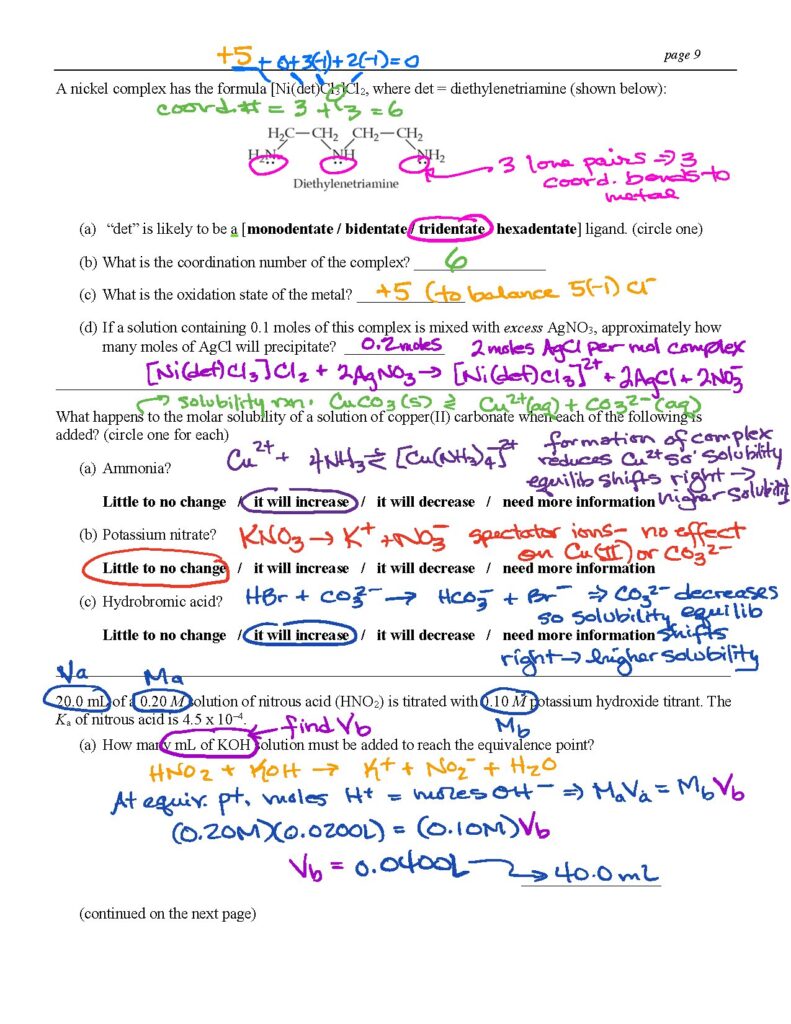 +5 + 0 + 3(-1) + 2(-1) = 0
page 9
A nickel complex has the formula [Ni(det)Cl₃]Cl₂, where det = diethylenetriamine (shown below):
coord. # = 3 + 3 = 6
H₂C—CH₂ CH₂—CH₂
H₂N: NH NH₂
Diethylenetriamine
3 lone pairs ⇒ 3
coord. bonds to
metal
(a) “det” is likely to be a [monodentate / bidentate / tridentate / hexadentate] ligand. (circle one)
(b) What is the coordination number of the complex? 6
(c) What is the oxidation state of the metal? +5 (to balance 5(-1) Cl⁻
(d) If a solution containing 0.1 moles of this complex is mixed with excess AgNO₃, approximately how
many moles of AgCl will precipitate? 0.2 moles 2 moles AgCl per mol complex
[Ni(det)Cl₃]Cl₂ + 2AgNO₃ → [Ni(det)Cl₃]²⁺ + 2AgCl + 2NO₃⁻
→ solubility rxn: CuCO₃(s) ⇌ Cu²⁺(aq) + CO₃²⁻(aq)
What happens to the molar solubility of a solution of copper(II) carbonate when each of the following is
added? (circle one for each)
(a) Ammonia? Cu²⁺ + 4NH₃ ⇌ [Cu(NH₃)₄]²⁺
formation of complex
reduces Cu²⁺ so solubility
equilib shifts right →
higher solubility
Little to no change / it will increase / it will decrease / need more information
(b) Potassium nitrate? KNO₃ → K⁺ + NO₃⁻ spectator ions – no effect
on Cu(II) or CO₃²⁻
Little to no change / it will increase / it will decrease / need more information
(c) Hydrobromic acid? HBr + CO₃²⁻ → HCO₃⁻ + Br⁻ ⇒ CO₃²⁻ decreases
so solubility equilib
Little to no change / it will increase / it will decrease / need more information shifts
right → higher solubility
Va Ma
20.0 mL of a 0.20 M solution of nitrous acid (HNO₂) is titrated with 0.10 M potassium hydroxide titrant. The
Kₐ of nitrous acid is 4.5 x 10⁻⁴.
Mb
find Vb
(a) How many mL of KOH solution must be added to reach the equivalence point?
HNO₂ + KOH → K⁺ + NO₂⁻ + H₂O
At equiv. pt. moles H⁺ = moles OH⁻ ⇒ MaVa = MbVb
(0.20M)(0.0200L) = (0.10M)Vb
Vb = 0.0400L → 40.0 mL
(continued on the next page)